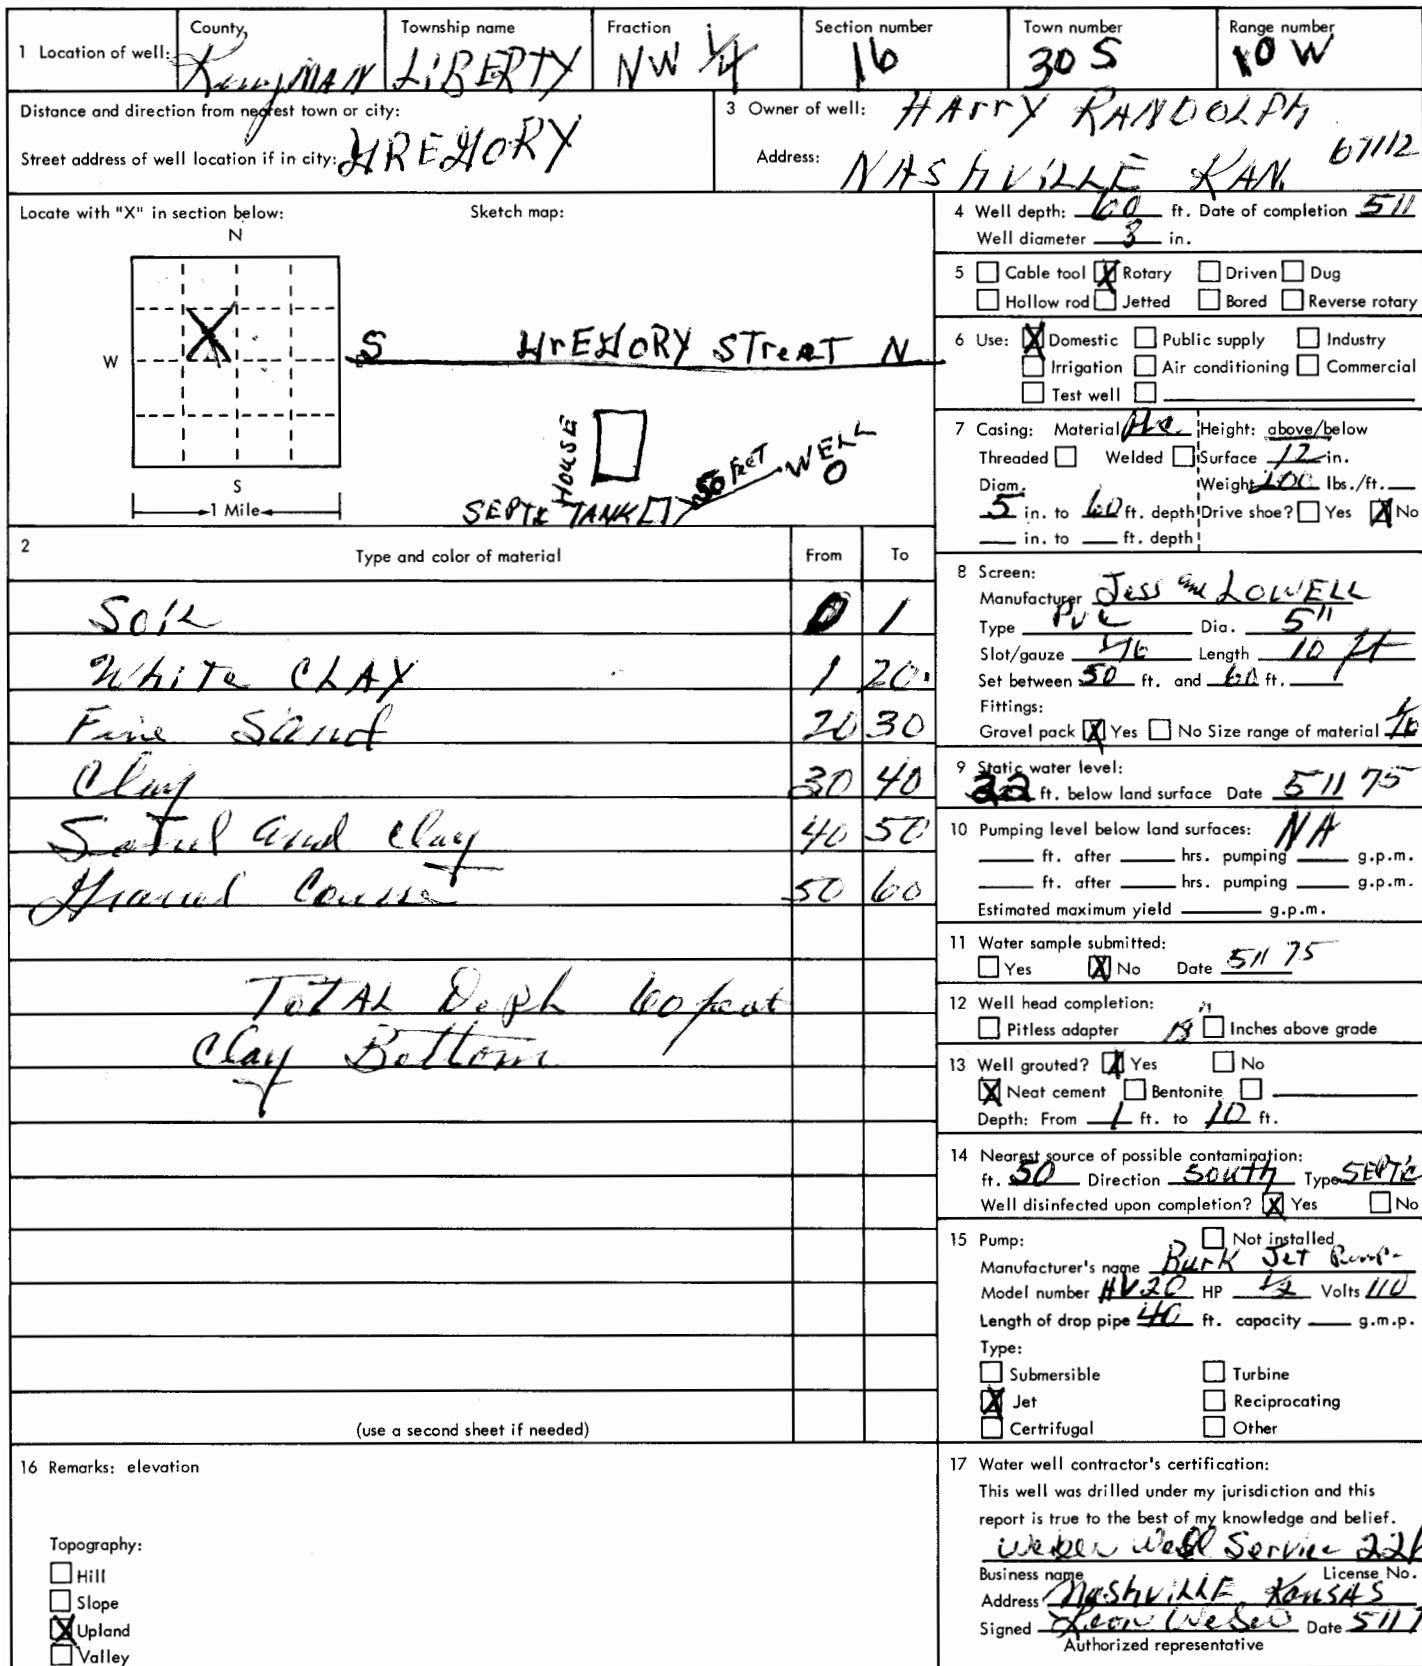 1 Location of well:
County
KingMAN
Township name
LIBERTY
Fraction
NW 1/4
Section number
16
Town number
30 S
Range number
10 W
Distance and direction from nearest town or city:
Street address of well location if in city: GREGORY
3 Owner of well: HArrY RANDOLPH
Address: NAShVILLE KAN. 67112
Locate with "X" in section below:
Sketch map:
N
W
S
1 Mile
S GrEGORY STreeT N
HOUSE
SEPTIC TANK
50 FEET
WELL
4 Well depth: 60 ft. Date of completion 511
Well diameter 8 in.
5 Cable tool X Rotary Driven Dug
Hollow rod Jetted Bored Reverse rotary
6 Use: X Domestic Public supply Industry
Irrigation Air conditioning Commercial
Test well
7 Casing: Material Height: above/below
Threaded Welded Surface 12 in.
Diam. Weight 200 lbs./ft.
5 in. to 60 ft. depth Drive shoe? Yes X No
in. to ft. depth
2 Type and color of material From To
Soil 0 1
White CLAY 1 20
Fine Sand 20 30
Clay 30 40
and Clay 40 50
50 60
ToTAL Deph 60 feet
Clay Bottom
(use a second sheet if needed)
8 Screen:
Manufacturer Jess and LOWELL
Type PVC Dia. 5"
Slot/gauze 1/16 Length 10 ft
Set between 50 ft. and 60 ft.
Fittings:
Gravel pack X Yes No Size range of material
9 Static water level:
22 ft. below land surface Date 511 75
10 Pumping level below land surfaces: NA
ft. after hrs. pumping g.p.m.
ft. after hrs. pumping g.p.m.
Estimated maximum yield g.p.m.
11 Water sample submitted:
Yes X No Date 511 75
12 Well head completion:
Pitless adapter Inches above grade
13 Well grouted? X Yes No
X Neat cement Bentonite
Depth: From 1 ft. to 10 ft.
14 Nearest source of possible contamination:
ft. 50 Direction South Type SEPTC
Well disinfected upon completion? X Yes No
15 Pump: Not installed
Manufacturer's name Burk JeT Pump
Model number HV20 HP 1/2 Volts 110
Length of drop pipe 40 ft. capacity g.m.p.
Type:
Submersible Turbine
X Jet Reciprocating
Certrifugal Other
16 Remarks: elevation
Topography:
Hill
Slope
X Upland
Valley
17 Water well contractor's certification:
This well was drilled under my jurisdiction and this
report is true to the best of my knowledge and belief.
Weber Well Service 22
Business name License No.
Address NashVILLE KansAS
Signed Leon Weber Date 511 7
Authorized representative